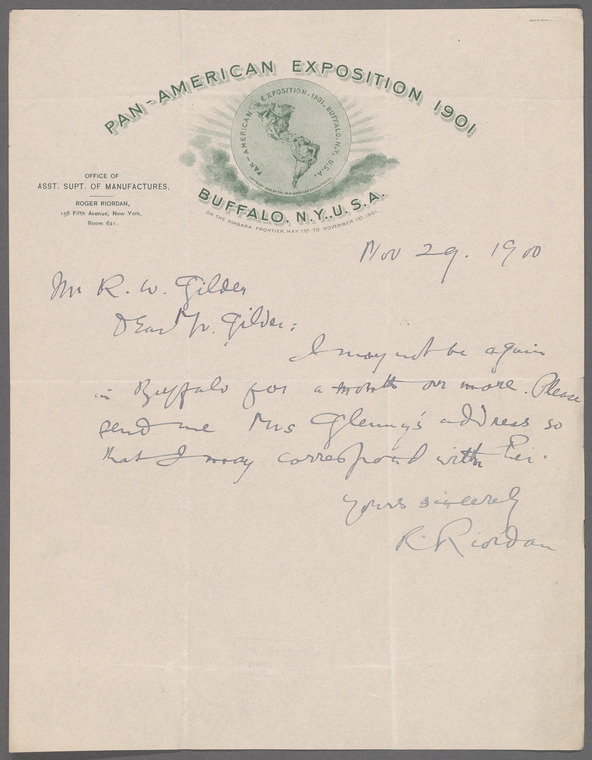 PAN-AMERICAN EXPOSITION 1901
PAN-AMERICAN EXPOSITION. 1901. BUFFALO, N.Y. U.S.A.
BUFFALO, N.Y., U.S.A.
ON THE NIAGARA FRONTIER, MAY 1ST TO NOVEMBER 1ST, 1901.
OFFICE OF
ASST. SUPT. OF MANUFACTURES,
ROGER RIORDAN,
156 Fifth Avenue, New York,
Room 621.
Nov 29. 1900
Mr R. W. Gilder
Dear Mr. Gilder:
I may not be again
in Buffalo for a month or more. Please
send me Mrs Glenny's address so
that I may correspond with her.
Yours sincerely
R. Riordan